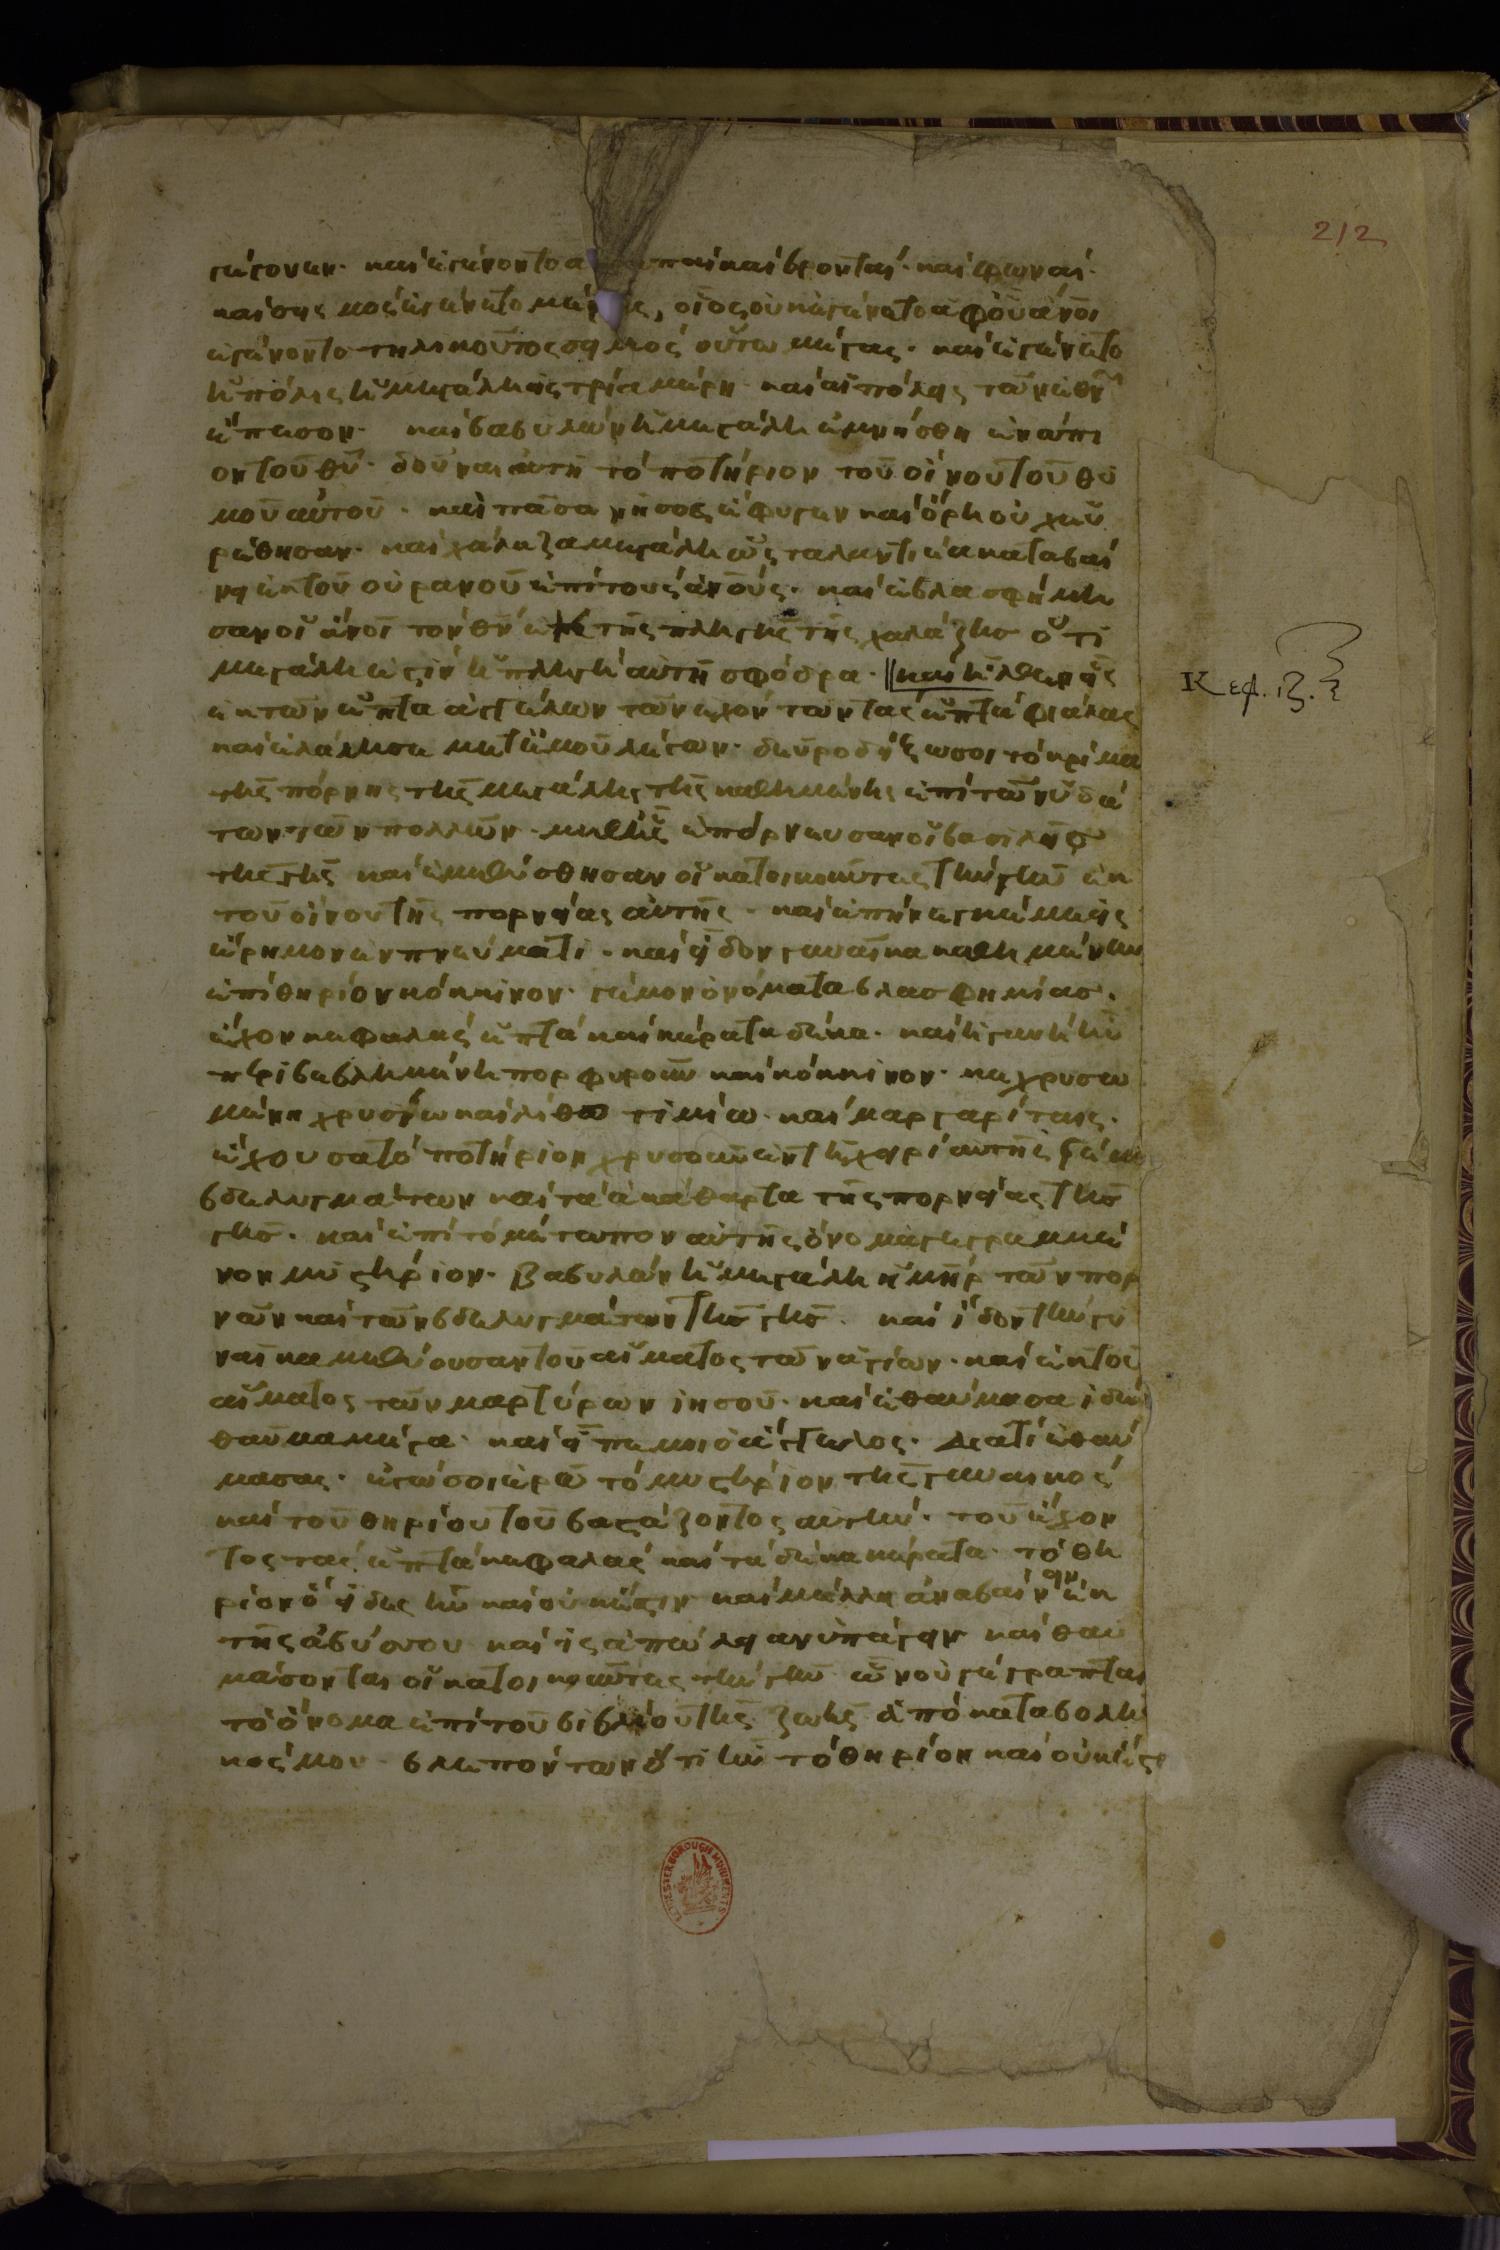 212
γέγονεν· καὶ ἐγένοντο ἀ παὶ καὶ βρονταί· καὶ φωναί·
καὶ σεισμὸς ἐγένετο μέγας, οἷος οὐκ ἐγένετο ἀφ' οὗ ἄνοι
ἐγένοντο τηλικοῦτος σεισμὸς οὕτω μέγας· καὶ ἐγένετο
ἡ πόλις ἡ μεγάλη εἰς τρία μέρη· καὶ αἱ πόλεις τῶν ἐθν
ἔπεσον· καὶ βαβυλὼν ἡ μεγάλη ἐμνήσθη ἐνώπι
ον τοῦ θυ· δοῦναι αὐτῇ τὸ ποτήριον τοῦ οἴνου τοῦ θυ
μοῦ αὐτοῦ· καὶ πᾶσα νῆσος ἔφυγεν καὶ ὄρη οὐχ εὑ
ρέθησαν· καὶ χάλαζα μεγάλη ὡς ταλαντιαία καταβαί
νει ἐκ τοῦ οὐρανοῦ ἐπὶ τοὺς ἀνους· καὶ ἐβλασφήμη
σαν οἱ ἄνοι τὸν θν ἐκ τῆς πληγῆς τῆς χαλάζης ὅτι
μεγάλη ἐστὶν ἡ πληγὴ αὐτῆ σφόδρα· ‖ καὶ ἦλθεν εἷς
Κεφ. ιζ. ξ
ἐκ τῶν ἑπτὰ ἀγγέλων τῶν ἐχόντων τὰς ἑπτὰ φιάλας
καὶ ἐλάλησε μετ' ἐμοῦ λέγων· δεῦρο δείξω σοι τὸ κρίμα
τῆς πόρνης τῆς μεγάλης τῆς καθημένης ἐπὶ τῶν ὑδά
των τῶν πολλῶν· μεθ' ἧς ἐπόρνευσαν οἱ βασιλεῖς
τῆς γῆς καὶ ἐμεθύσθησαν οἱ κατοικοῦντες τὴν γῆν ἐκ
τοῦ οἴνου τῆς πορνείας αὐτῆς· καὶ ἀπήνεγκέ με εἰς
ἔρημον ἐν πνεύματι· καὶ εἶδον γυναῖκα καθημένην
ἐπὶ θηρίον κόκκινον· γέμον ὀνόματα βλασφημίας·
ἔχον κεφαλὰς ἑπτὰ καὶ κέρατα δέκα· καὶ ἡ γυνὴ ἦν
περιβεβλημένη πορφυροῦν καὶ κόκκινον· κεχρυσω
μένη χρυσίω καὶ λίθω τιμίω· καὶ μαργαρίταις·
ἔχουσα τὸ ποτήριον χρυσοῦν ἐν τῇ χειρὶ αὐτῆς γέμον
βδελυγμάτων καὶ τὰ ἀκάθαρτα τῆς πορνείας τῆς
γῆς· καὶ ἐπὶ τὸ μέτωπον αὐτῆς ὄνομα γεγραμμέ
νον μυστήριον· βαβυλὼν ἡ μεγάλη ἡ μηρ τῶν πορ
νῶν καὶ τῶν βδελυγμάτων τῆς γῆς· καὶ ἴδον τὴν γυ
ναῖκα μεθύουσαν τοῦ αἵματος τῶν ἁγίων· καὶ ἐκ τοῦ
αἵματος τῶν μαρτύρων ἰησοῦ· καὶ ἐθαύμασα ἰδὼν
θαῦμα μέγα· καὶ εἶπέ μοι ὁ ἄγγελος· Διατί ἐθαύ
μασας· ἐγώ σοι ἐρῶ τὸ μυστήριον τῆς γυναικὸς
καὶ τοῦ θηρίου τοῦ βαστάζοντος αὐτήν· τοῦ ἔχον
τος τὰς ἑπτὰ κεφαλὰς καὶ τὰ δέκα κέρατα· τὸ θη
ρίον ὃ εἶδες ἦν καὶ οὐκ ἔστιν καὶ μέλλει ἀναβαίνειν ἐκ
τῆς ἀβύσσου καὶ εἰς ἀπώλειαν ὑπάγειν καὶ θαυ
μάσονται οἱ κατοικοῦντες τὴν γῆν ὧν οὐ γέγραπται
τὸ ὄνομα ἐπὶ τοῦ βιβλίου τῆς ζωῆς ἀπὸ καταβολῆς
κόσμου· βλεπόντων ὅτι ἦν τὸ θηρίον καὶ οὐκ ἔστι